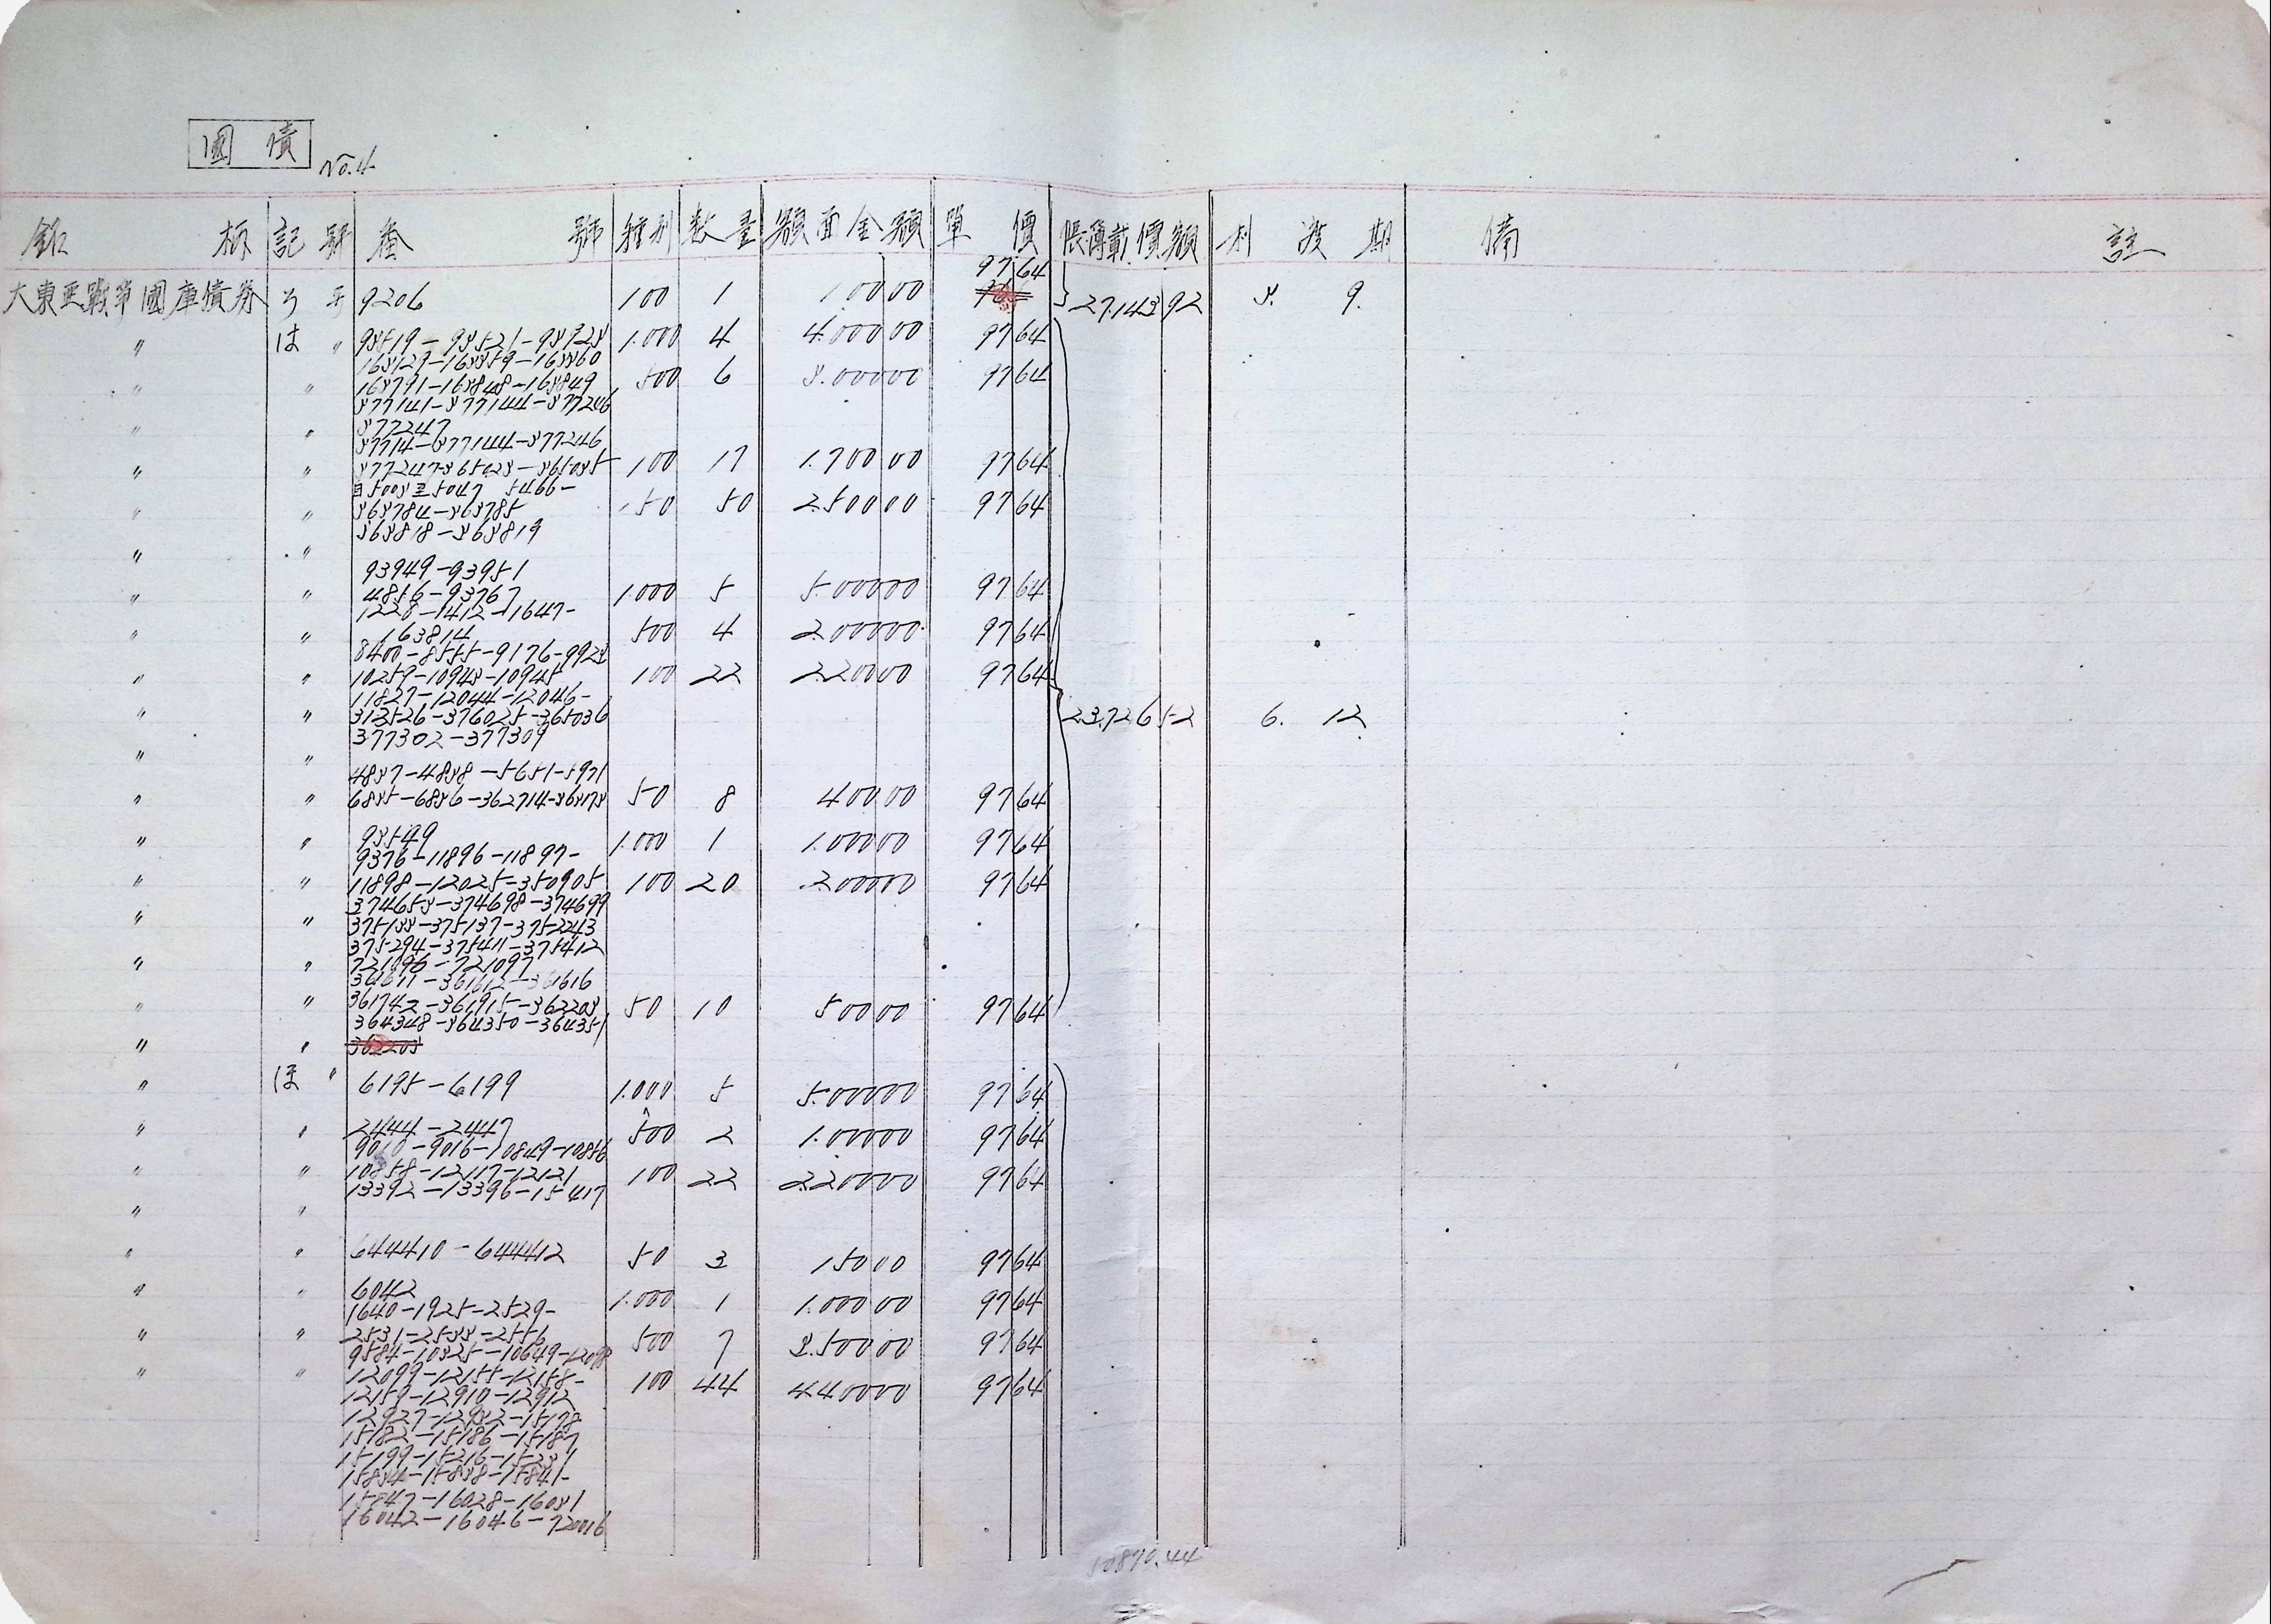 國債
No.4
銘柄 記號 番號 種別 数量 額面金額 單價 帳簿載價額 利渡期 備註
97 64
大東亜戰爭國庫債券 ろ 9206 100 1 1000 00 27.143 92 3. 9.
〃 は 〃 93519-93521-93923 1.000 4 4.000 00 97 64
163129-163359-163360
〃 〃 163791-163848-163849 500 6 3.000 00 97 64
377141-377144-377246
〃 〃 377247
37714-377144-377246
〃 〃 377247-365033-365035 100 17 1.700 00 97 64
自5003至5047 5466-
〃 〃 363784-363785 50 50 2.500 00 97 64
363818-363819
〃 〃
93949-93951
〃 〃 4856-93767 1.000 5 5.000 00 97 64
1228-1412-1647-
〃 〃 163814 500 4 2.000 00 97 64
8400-8555-9176-9923
〃 〃 10259-10943-10945 100 22 2.200 00 97 64
11827-12044-12046-
〃 〃 312526-376025-365036 23.726 52 6. 12.
377302-377309
〃 〃
4837-4838-5651-5971
〃 〃 6835-6836-362714-363173 50 8 400 00 97 64
〃 〃 93549 1.000 1 1.000 00 97 64
9376-11896-11897-
〃 〃 11898-12025-350905 100 20 2.000 00 97 64
374653-374698-374699
〃 〃 375133-375137-375243
375294-375411-375412
〃 〃 721096-721097
361611-361612-361616
〃 〃 361742-361915-362203 50 10 500 00 97 64
364348-364350-364351
〃 〃 362203
〃 ほ 〃 6195-6199 1.000 5 5.000 00 97 64
〃 〃 2444-2447 500 2 1.000 00 97 64
9010-9016-10849-10856
〃 〃 10858-12117-12121 100 22 2.200 00 97 64
13392-13396-15417
〃 〃
〃 〃 644410-644412 50 3 150 00 97 64
〃 〃 6042 1.000 1 1.000 00 97 64
1640-1925-2529-
〃 〃 2531-2533-2556 500 7 3.500 00 97 64
9584-10325-10649-12098
〃 〃 12099-12155-12158- 100 44 4.400 00 97 64
12159-12910-12912
12927-12932-15178
15182-15186-15187
15199-15216-15231
15834-15838-15841-
15847-16028-16031
16042-16046-720016
50870.44